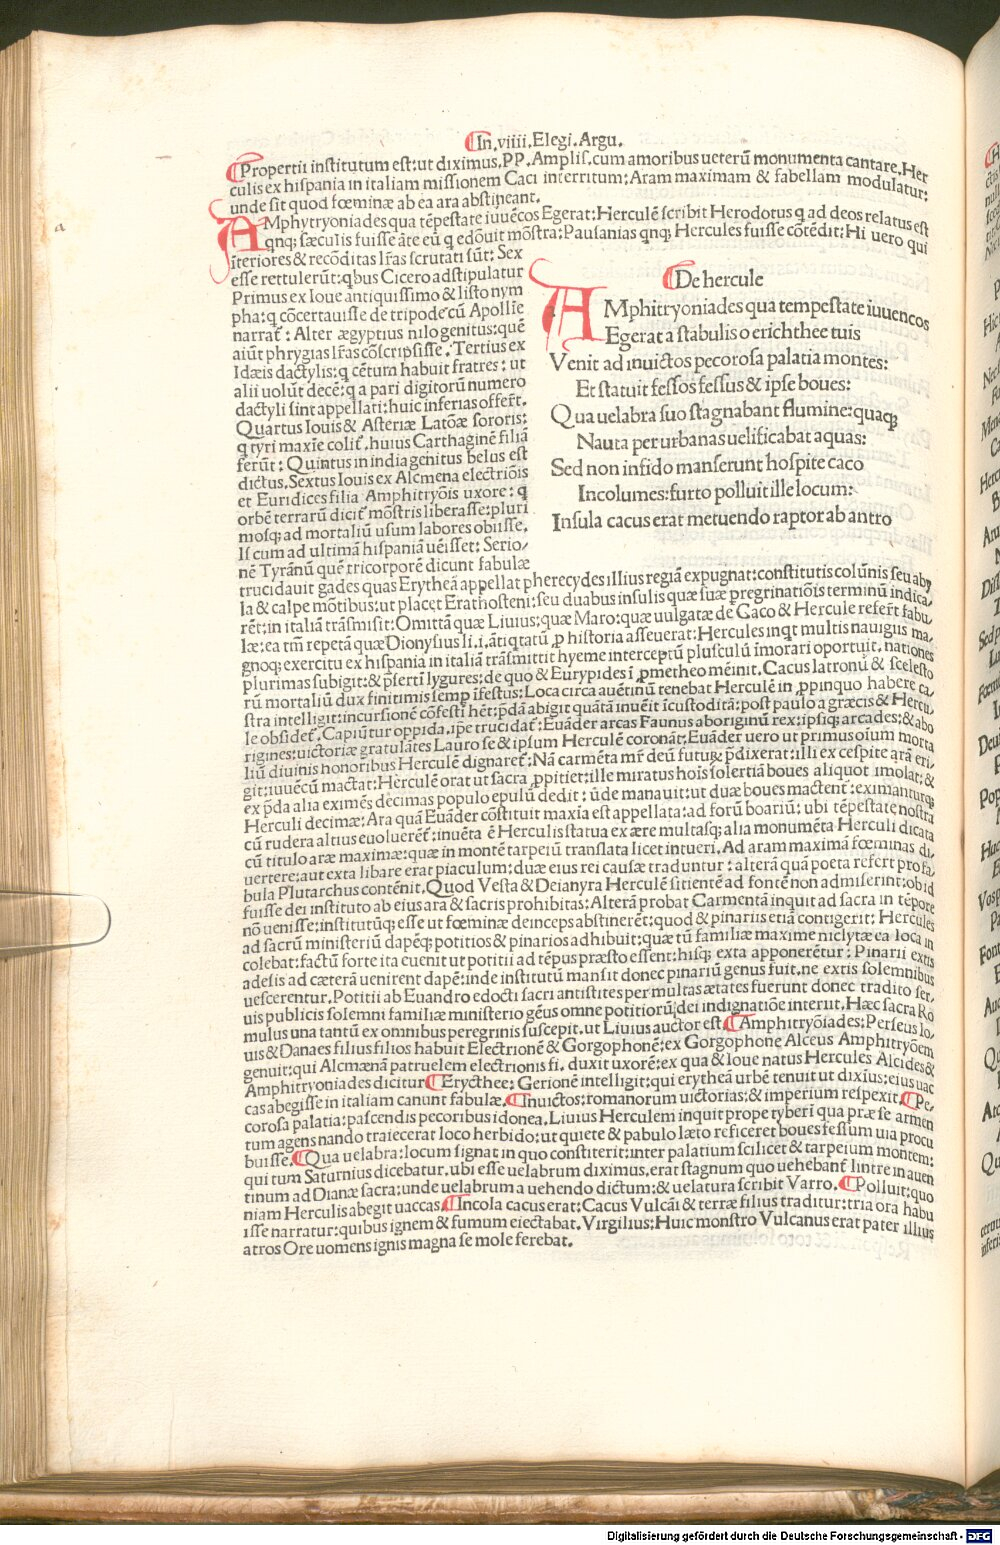 ⸿In.viiii.Elegi.Argu.
⸿Propertii institutum est:ut diximus.PP.Amplis.cum amoribus ueterū monumenta cantare.Her
culis ex hispania in italiam missionem Caci interritum:Aram maximam & fabellam modulatur:
unde sit quod fœminæ ab ea ara abstineant.
AMphytryoniades qua tēpestate iuuēcos Egerat:Herculē scribit Herodotus q ad deos relatus est
qnq; sæculis fuisse āte eū q edōuit mōstra:Pausanias qnq; Hercules fuisse cōtēdit:Hi uero qui
īteriores & recōditas lr̄as scrutati sūt: Sex
esse rettulerūt:qbus Cicero adstipulatur
Primus ex Ioue antiquissimo & listo nym
pha:q cōcertauisse de tripode cū Apollīe
narrat̄: Alter ægyptius nilo genitus:quē
aiūt phrygias lr̄as cōscripsisse. Tertius ex
Idæis dactylis:q cētum habuit fratres: ut
alii uolūt decē:q a pari digitorū numero
dactyli sint appellati:huic inferias offert̄.
Quartus Iouis & Asteriæ Latōæ sororis:
q tyri maxīe colit̄.huius Carthaginē filiā
ferūt: Quintus in india genitus belus est
dictus.Sextus Iouis ex Alcmena electriōis
et Euridices filia Amphitryōis uxore: q
orbē terrarū dicit̄ mōstris liberasse:pluri
mosq; ad mortaliū usum labores obiisse.
Is cum ad ultimā hispaniā uēisset: Serio/
nē Tyrānū quē tricorporē dicunt fabulæ
⸿De hercule
AMphitryoniades qua tempestate iuuencos
Egerat a stabulis o erichthee tuis
Venit ad inuictos pecorosa palatia montes:
Et statuit fessos fessus & ipse boues:
Qua uelabra suo stagnabant flumine:quaq;
Nauta per urbanas uelificabat aquas:
Sed non infido manserunt hospite caco
Incolumes:furto polluit ille locum:
Insula cacus erat metuendo raptor ab antro
trucidauit gades quas Erytheā appellat pherecydes illius regiā expugnat:constitutis colūnis seu aby
la & calpe mōtibus:ut placet Erathosteni:seu duabus insulis quæ suæ pregrinatiōis terminū indica/
rēt:in italiā trāsmisit: Omittā quæ Liuius:quæ Maro:quæ uulgatæ de Caco & Hercule refert̄ fabu/
læ:ea tm̄ repetā quæ Dionysius li.i.āti qtatū ꝓ historia asseuerat:Hercules inqt multis nauigiis ma/
gnoq; exercitu ex hispania in italiā trāsmittit hyeme interceptū plusculū īmorari oportuit. nationes
plurimas subigit:& p̄sertī lygures:de quo & Eurypides ī ꝓmetheo mēinit. Cacus latronū & scelesto
rū mortaliū dux finitimis semp īfestus:Loca circa auētinū tenebat Herculē in ꝓpinquo habere ca/
stra intelligit:incursionē cōfestī hēt:p̄dā abigit quātā inuēit īcustoditā:post paulo a græcis & Hercu/
le obsidet̄. Capiūtur oppida.ip̄e trucidat̄: Euāder arcas Faunus aboriginū rex:ipsiq; arcades:& abo
rigines:uictoriæ gratulātes Lauro se & ipsum Herculē coronāt:Euāder uero ut primus oīum morta
liū diuinis honoribus Herculē dignaret̄:Nā carmēta mr̄ deū futuꝝ p̄dixerat:illi ex cespite arā eri/
git:iuuēcū mactat:Hercule orat ut sacra ꝓpitiet:ille miratus hoīs solertiā boues aliquot īmolat:&
ex p̄da alia eximēs decimas populo epulū dedit: ūde manauit:ut duæ boues mactent̄:eximanturq;
Herculi decimæ: Ara quā Euāder cōstituit maxīa est appellata:ad forū boariū: ubi tēpestate nostra
cū rudera altius euoluerēt̄:inuēta ē Herculis statua ex ære multasq; alia monumēta Herculi dicata
cū titulo aræ maximæ:quæ in montē tarpeiū translata licet intueri. Ad aram maximā fœminas di/
uertere:aut exta libare erat piaculum:duæ eius rei causæ traduntur: alterā quā poeta refert pro fa/
bula Plutarchus contēnit.Quod Vesta & Deianyra Herculē sitientē ad fontē non admiserint:ob id
fuisse dei instituto ab eius ara & sacris prohibitas:Alterā probat Carmentā inquit ad sacra in tēpore
nō uenisse:institutūq; esse ut fœminæ deinceps abstinerēt:quod & pinariis etiā contigerit: Hercules
ad sacrū ministeriū dapēq; potitios & pinarios adhibuit:quæ tū familiæ maxime niclytæ ea loca in
colebāt:factū forte ita euenit ut potitii ad tēpus præsto essent:hisq; exta apponerētur: Pinarii extis
adesis ad cæterā uenirent dapē:inde institutū mansit donec pinariū genus fuit.ne extis solemnibus
uescerentur.Potitii ab Euandro edocti sacri antistites per multas ætates fuerunt donec tradito ser/
uis publicis solemni familiæ ministerio gēus omne potitiorū dei indignatiōe interiit. Hæc sacra Ro
mulus una tantū ex omnibus peregrinis suscepit.ut Liuius auctor est ⸿Amphitryōiades: Perseus Io/
uis & Danaes filius filios habuit Electrionē & Gorgophonē:ex Gorgophone Alceus Amphitryōem
genuit:qui Alcmænā patruelem electrionis fi. duxit uxorē:ex qua & Ioue natus Hercules Alcides &
Amphitryoniades dicitur ⸿Erycthee: Gerionē intelligit:qui erytheā urbē tenuit ut dixius:eius uac
cas abegisse in italiam canunt fabulæ. ⸿Inuictos:romanorum uictorias:& imperium respexit. ⸿Pe/
corosa palatia:pascendis pecoribus idonea. Liuius Herculem inquit prope tyberī qua præ se armen
tum agens nando traiecerat loco herbido:ut quiete & pabulo læto reficeret boues fessum uia procu
buisse. ⸿Qua uelabra:locum signat in quo constiterit:inter palatium scilicet & tarpeium montem:
qui tum Saturnius dicebatur.ubi esse uelabrum diximus.erat stagnum quo uehebant̄ lintre in auen
tinum ad Dianæ sacra:unde uelabrum a uehendo dictum:& uelatura scribit Varro. ⸿Polluit:quo
niam Herculis abegit uaccas. ⸿Incola cacus erat: Cacus Vulcāi & terræ filius traditur:tria ora habu
isse narratur:quibus ignem & fumum eiectabat. Virgilius: Huic monstro Vulcanus erat pater illius
atros Ore uomens ignis magna se mole ferebat.
Digitalisierung gefördert durch die Deutsche Forschungsgemeinschaft - DFG